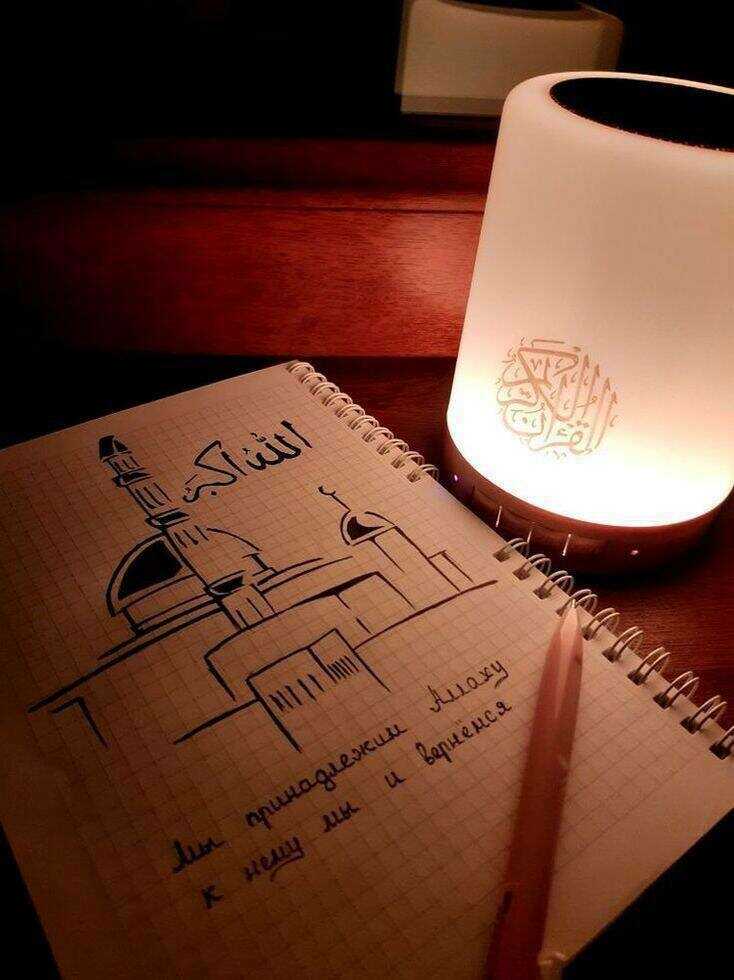 الله اكبر
القرآن الكريم
Мы принадлежим Аллаху
к нему мы и вернёмся